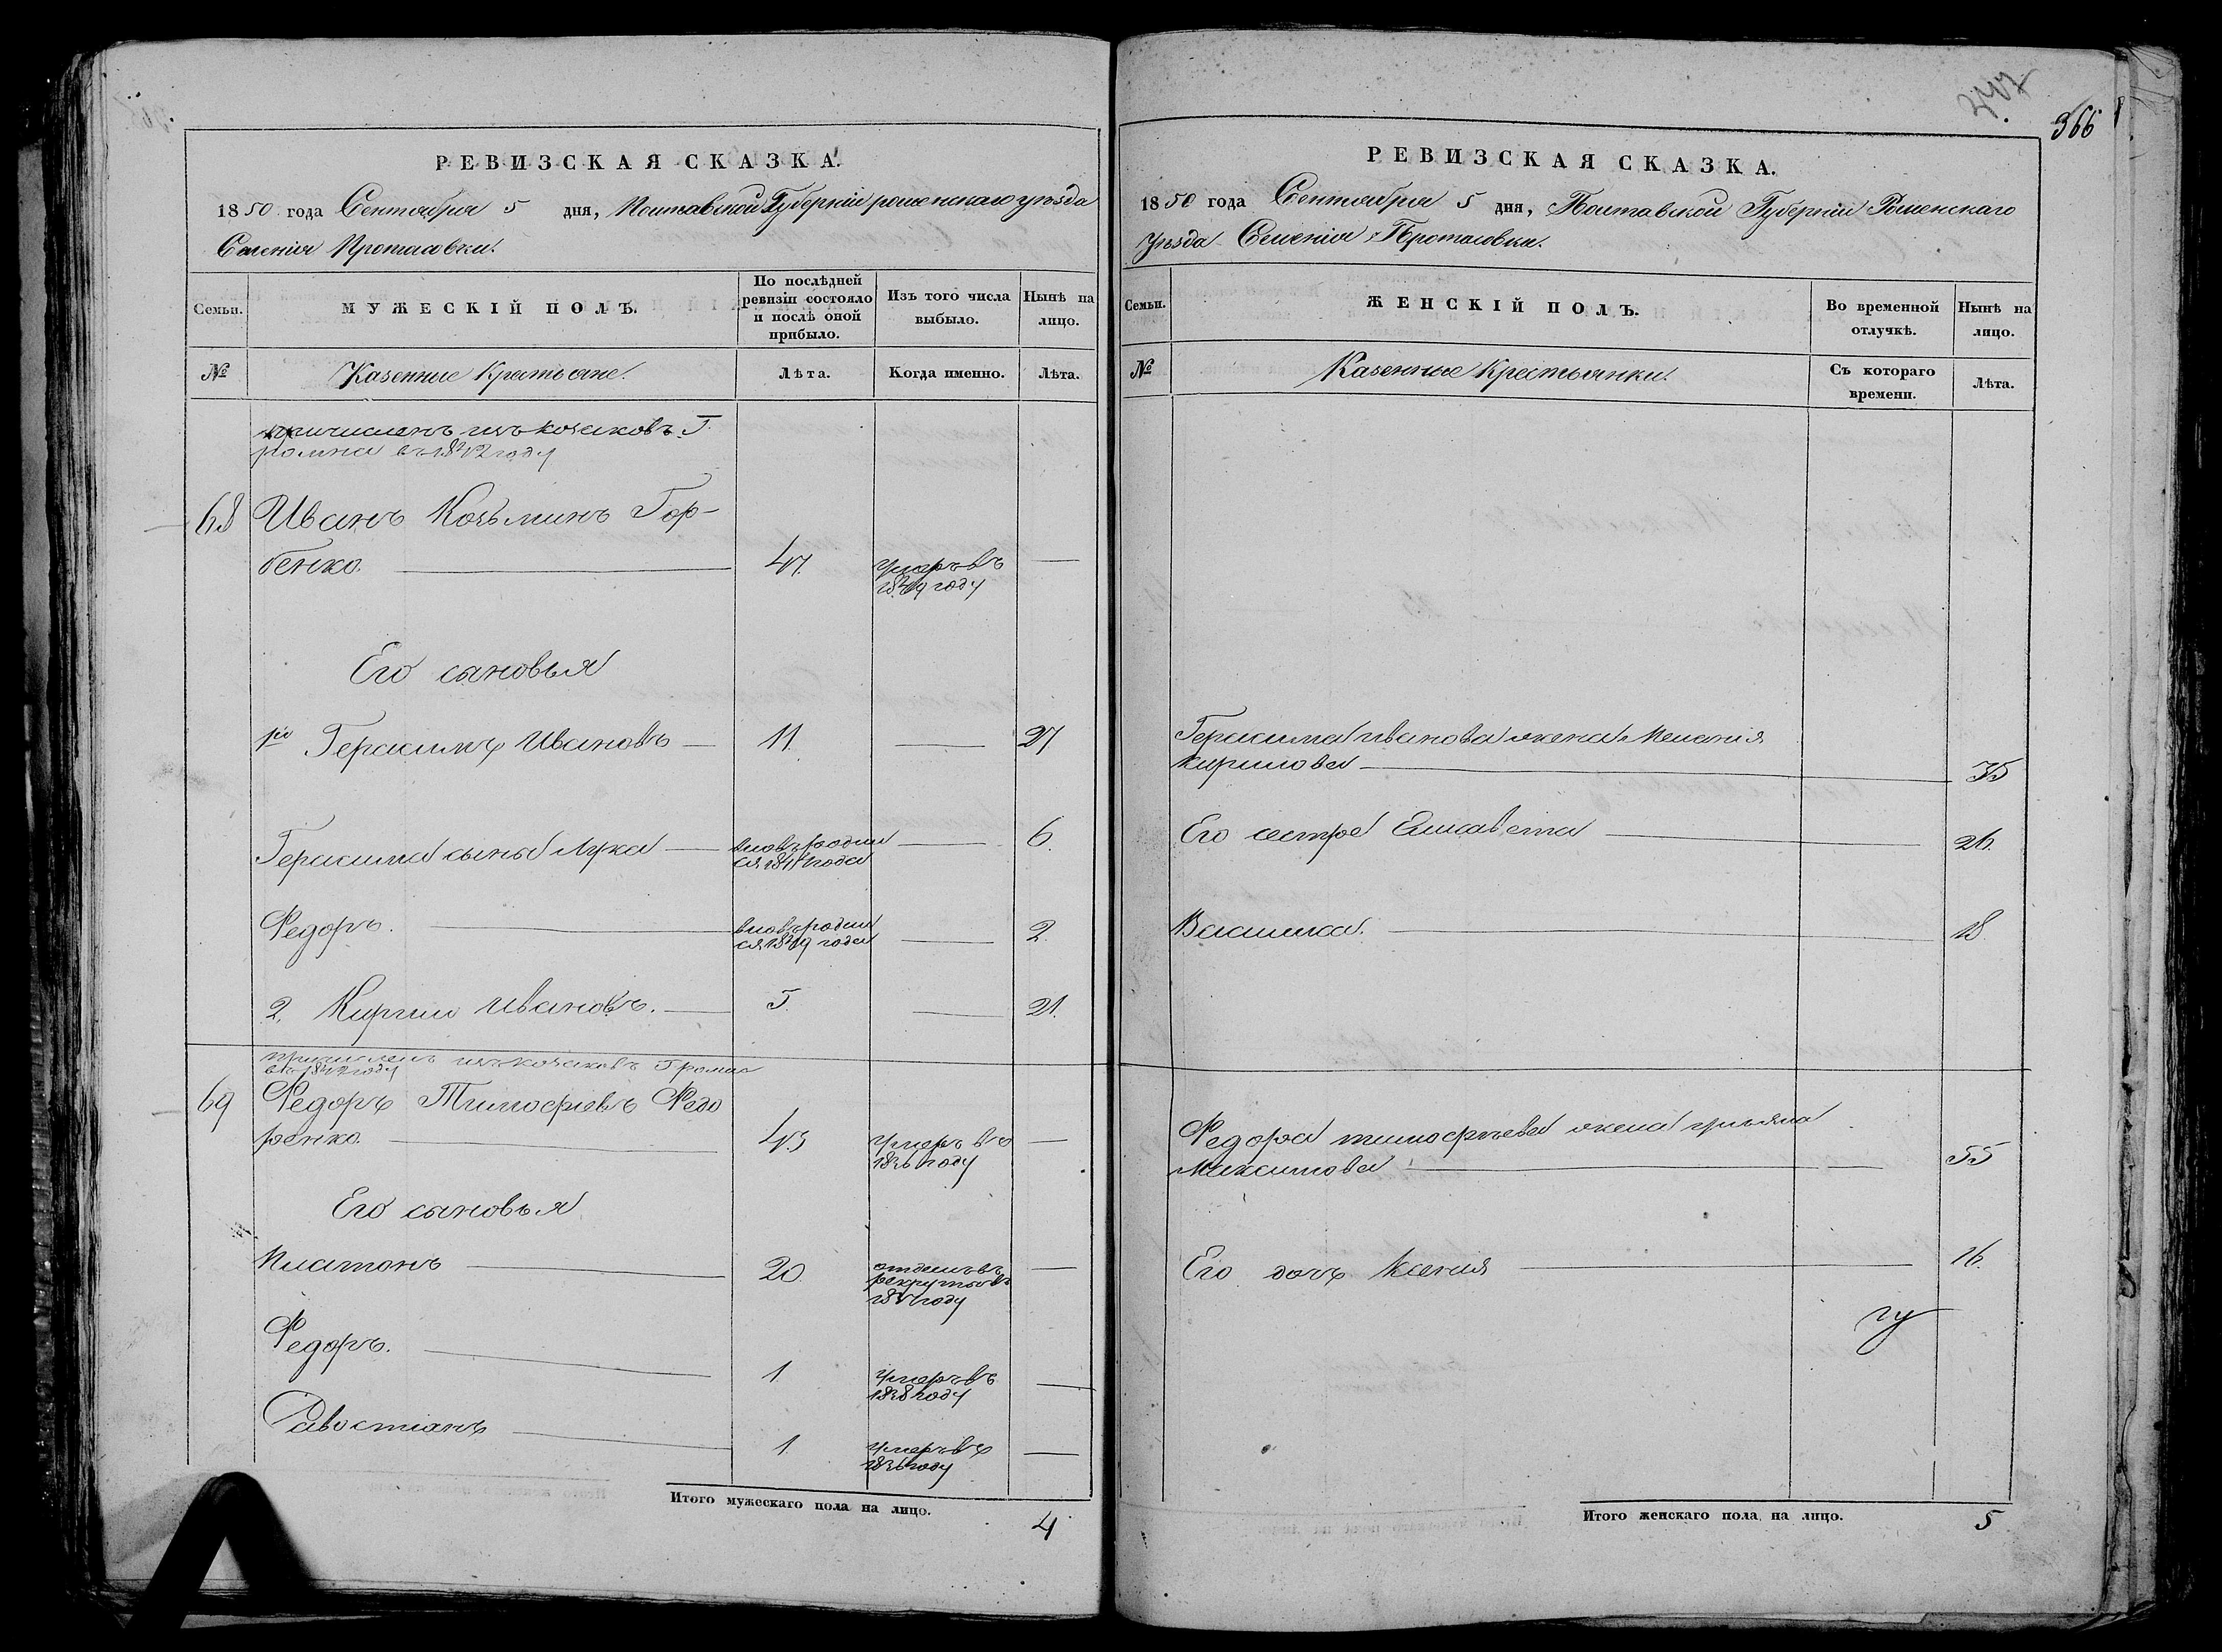 РЕВИЗСКАЯ СКАЗКА.
1850 года Сентября 5 дня, Полтавской Губерніи роменскаго уѣзда
Селенія Протасовки.
Семьи.
МУЖЕСКІЙ ПОЛЪ.
По послѣдней
ревизіи состояло
и послѣ оной
прибыло.
Изъ того числа
выбыло.
Нынѣ на
лицо.
№
Казенные Крестьяне.
Лѣта.
Когда именно.
Лѣта.
причисленъ изъ козаковъ Г.
ромна въ 1842 году
68 Иванъ Козьминъ Гор-
бенко. 47. умеръ въ
1849 году
Его сыновья
1й Герасимъ Ивановъ 11 27
Герасима сынъ Лука вновь родил
ся года 6.
Федоръ. вновь родил
ся 1849 года 2.
2. Кирилъ Ивановъ. 5. 21.
причисленъ изъ козаковъ Г ромна
въ 1842 году
69 Федоръ Тимофѣевъ Федо
ренко. 43 умеръ въ
1836 году
Его сыновья
Платонъ 20. отданъ въ
рекруты въ
году
Федоръ. 1 умеръ въ
1838 году
Савостіанъ 1 умеръ въ
1836 году
Итого мужескаго пола на лицо. 4
366
РЕВИЗСКАЯ СКАЗКА.
1850 года Сентября 5 дня, Полтавской Губерніи Роменскаго
уѣзда Селенія Протасовки.
Семьи.
ЖЕНСКІЙ ПОЛЪ.
Во временной
отлучкѣ.
Нынѣ на
лицо.
№
Казенные Крестьянки.
Съ котораго
времени.
Лѣта.
Герасима Иванова жена Меланія
Кирилова 35
Его сестра Елисавета 26.
Василиса. 18
Федора Тимофѣева жена Ульяна
Максимова 55
Его дочь Ксенія 16.
Итого женскаго пола на лицо. 5